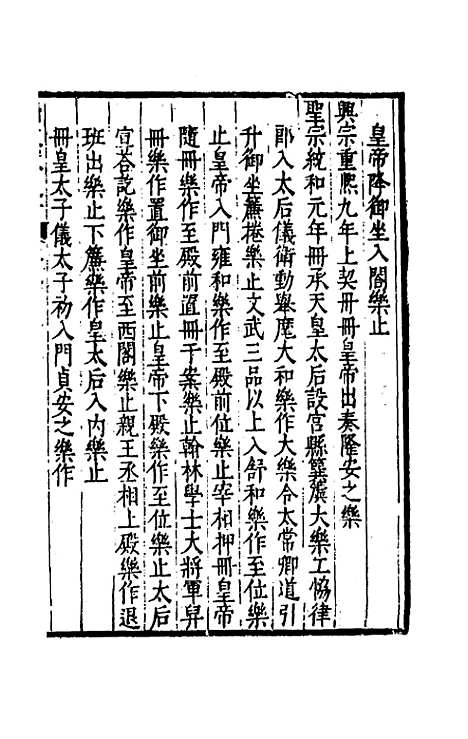 皇帝降御坐入閤樂止
興宗重熙九年上契冊冊皇帝出奏隆安之樂
聖宗統和元年冊承天皇太后設宮縣簨簴大樂工恊律
郎入太后儀衛動舉麾大和樂作大樂令太常卿道引
升御坐簾捲樂止文武三品以上入舒和樂作至位樂
止皇帝入門雍和樂作至殿前位樂止宰相押冊皇帝
隨冊樂作至殿前置冊于案樂止翰林學士大將軍舁
冊樂作置御坐前樂止皇帝下殿樂作至位樂止太后
宣荅訖樂作皇帝至西閤樂止親王丞相上殿樂作退
班出樂止下簾樂作皇太后入內樂止
冊皇太子儀太子初入門貞安之樂作